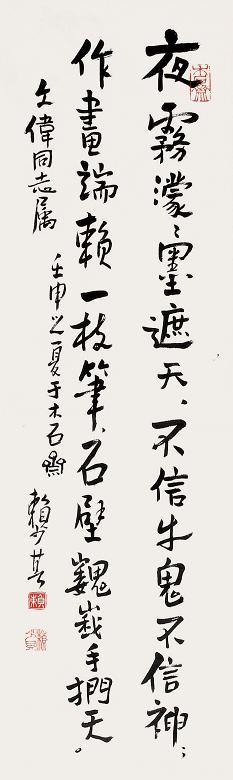 夜霧濛濛墨遮天、不信牛鬼不信神；
作畫端賴一枝筆、石壁巍峩手捫天。
文偉同志属
壬申之夏于木石齋
賴少其